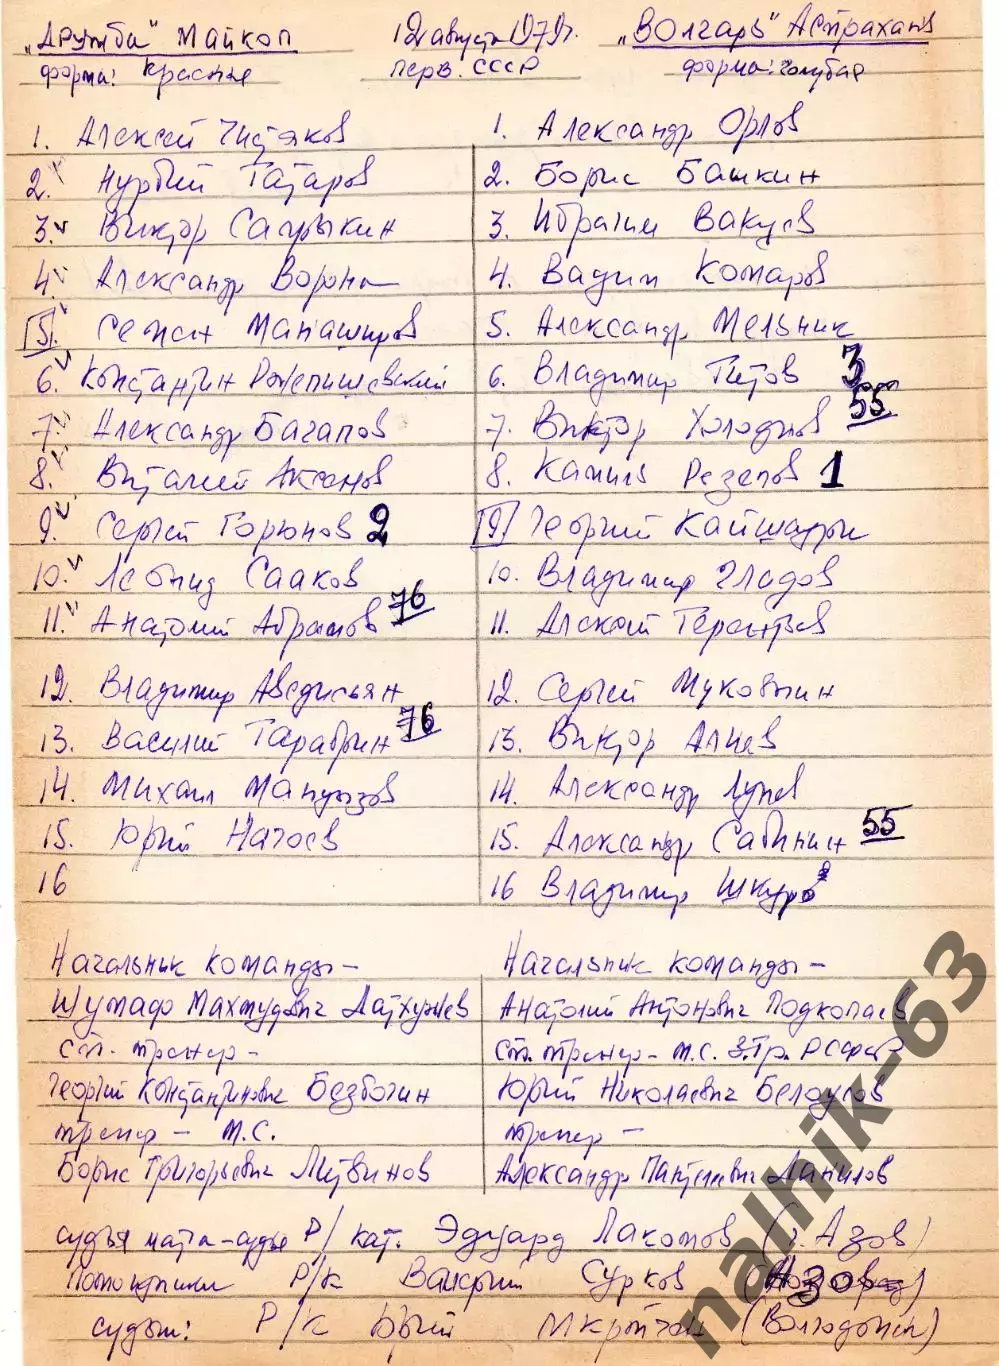 "Дружба" Майкоп 12 августа 1979г. "Волгарь" Астрахань
форма: красные перв. СССР форма: голубая
1. Алексей Чистяков
2. Нурбий Татаров
3. Виктор Сапрыкин
4. Александр Ворона
5. Семён Манаширов
6. Константин
7. Александр Багапов
8. Виталий Аксёнов
9. Сергей Горюнов 2
10. Леонид Сааков
11. Анатолий Абрамов 76
12. Владимир Аведисьян
13. Василий Тарабрин 76
14. Михаил
15. Юрий Нагоев
16
1. Александр Орлов
2. Борис Башкин
3. Ибрагим Вакуев
4. Вадим Комаров
5. Александр Мельник
6. Владимир Титов 3
7. Виктор Холоднов 55
8. Камиль Резепов 1
9. Георгий Кайшаури
10. Владимир Гладов
11. Алексей Терентьев
12. Сергей Муковнин
13. Виктор Алиев
14. Александр Лунев
15. Александр Сабинин 55
16 Владимир Шкуро
Начальник команды –
Шумафо Махмудович Датхужев
ст. тренер –
Георгий Константинович Безбогин
тренер – М.С.
Борис Григорьевич Литвинов
Начальник команды –
Анатолий Антонович Подкопаев
Ст. тренер – м.с. з.тр. РСФСР
Юрий Николаевич Белоусов
тренер –
Александр Данилов
судья матча – судья Р/кат. Эдуард Лакомов (г. Азов)
Помощники Р/к Валерий Сурков
судьи: Р/к Юрий Мкртчан (Волгодонск)
nalhik-63